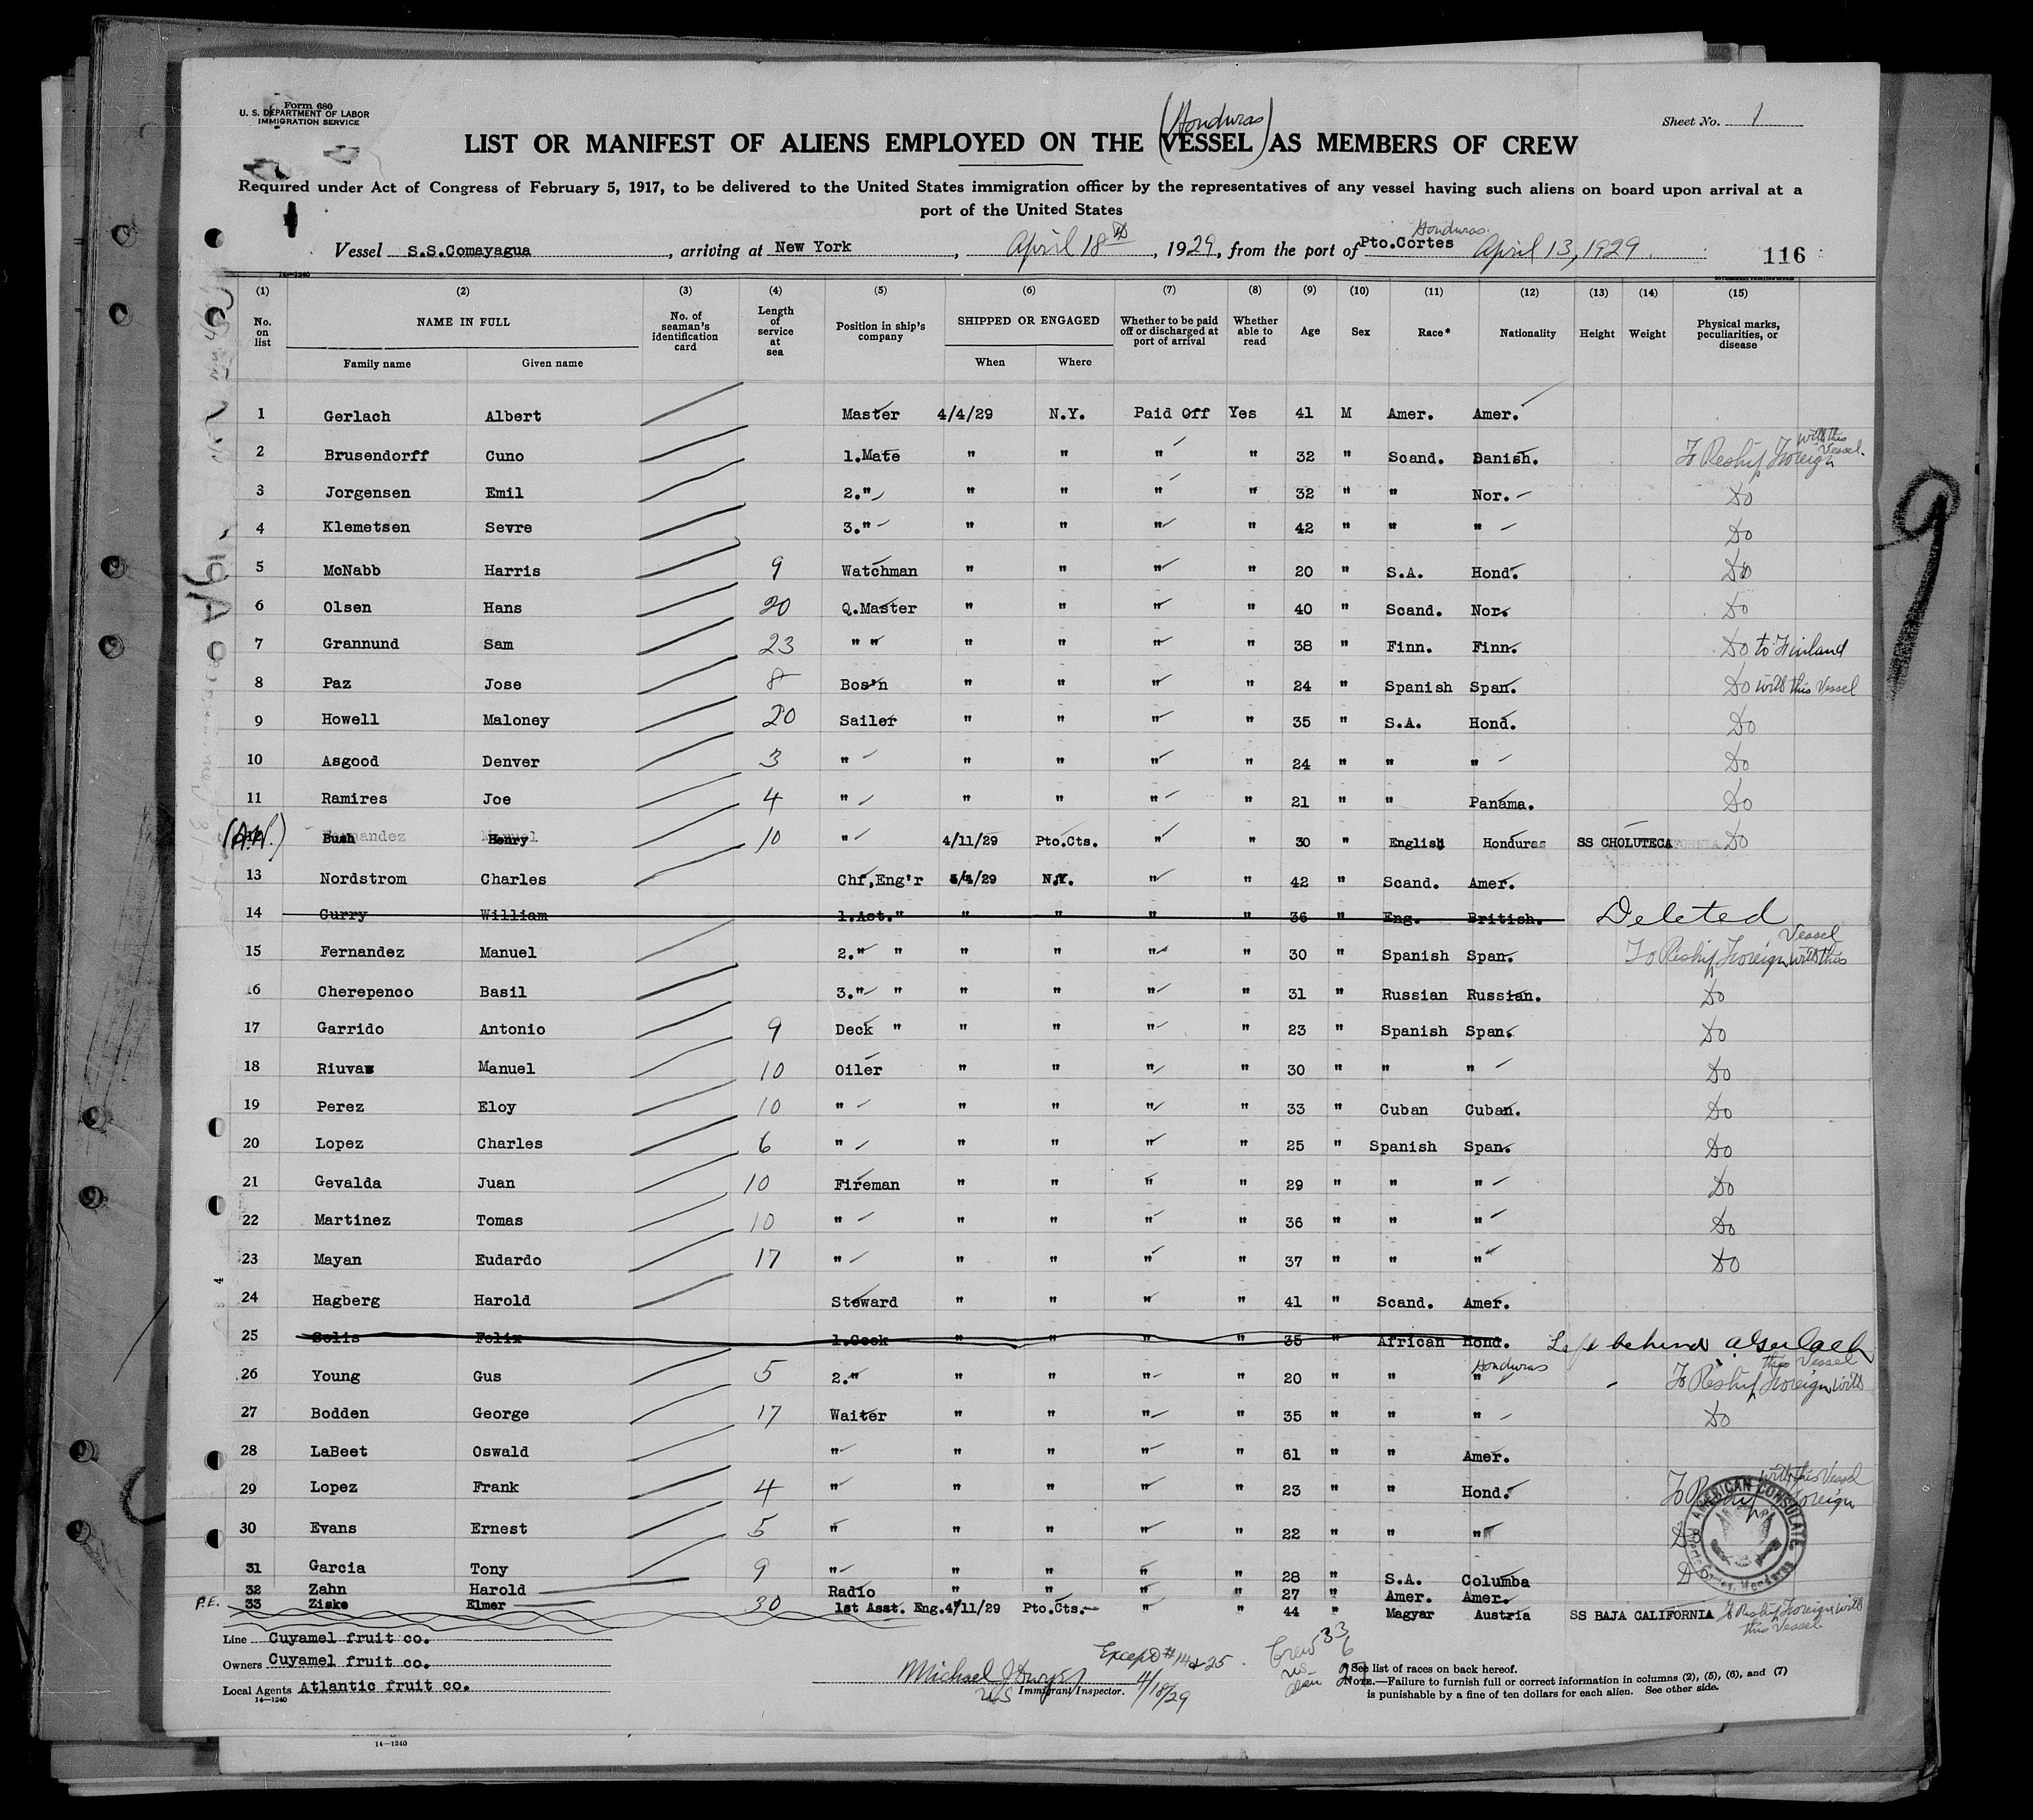 Form 680
U. S. DEPARTMENT OF LABOR
IMMIGRATION SERVICE
Sheet No. 1
(Honduras)
LIST OR MANIFEST OF ALIENS EMPLOYED ON THE VESSEL AS MEMBERS OF CREW
Required under Act of Congress of February 5, 1917, to be delivered to the United States immigration officer by the representatives of any vessel having such aliens on board upon arrival at a
port of the United States
Vessel S.S.Comayagua, arriving at New York, April 18th, 1929, from the port of Pto.Cortes Honduras. April 13, 1929.
116
14-1240
(1) (2) (3) (4) (5) (6) (7) (8) (9) (10) (11) (12) (13) (14) (15)
No. on list NAME IN FULL Family name Given name No. of seaman's identification card Length of service at sea Position in ship's company SHIPPED OR ENGAGED When Where Whether to be paid off or discharged at port of arrival Whether able to read Age Sex Race* Nationality Height Weight Physical marks, peculiarities, or disease
1 Gerlach Albert Master 4/4/29 N.Y. Paid Off Yes 41 M Amer. Amer.
2 Brusendorff Cuno 1.Mate " " " " 32 " Scand. Danish. To Reship Foreign with this Vessel.
3 Jorgensen Emil 2." " " " " 32 " " Nor. Do
4 Klemetsen Sevre 3." " " " " 42 " " " Do
5 McNabb Harris 9 Watchman " " " " 20 " S.A. Hond. Do
6 Olsen Hans 20 Q.Master " " " " 40 " Scand. Nor. Do
7 Grannund Sam 23 " " " " " " 38 " Finn. Finn. Do to Finland
8 Paz Jose 8 Bos'n " " " " 24 " Spanish Span. Do with this Vessel
9 Howell Maloney 20 Sailer " " " " 35 " S.A. Hond. Do
10 Asgood Denver 3 " " " " " 24 " " " Do
11 Ramires Joe 4 " " " " " 21 " " Panama. Do
Bush Henry 10 " 4/11/29 Pto.Cts. " " 30 " English Honduras SS CHOLUTECA Do
13 Nordstrom Charles Chf,Eng'r 4/4/29 N.Y. " " 42 " Scand. Amer.
14 Curry William 1.Ast." " " " " 36 " Eng. British. Deleted
15 Fernandez Manuel 2." " " " " " 30 " Spanish Span. To Reship Foreign with this Vessel
16 Cherepenco Basil 3." " " " " " 31 " Russian Russian. Do
17 Garrido Antonio 9 Deck " " " " " 23 " Spanish Span. Do
18 Riuvas Manuel 10 Oiler " " " " 30 " " " Do
19 Perez Eloy 10 " " " " " 33 " Cuban Cuban. Do
20 Lopez Charles 6 " " " " " 25 " Spanish Span. Do
21 Gevalda Juan 10 Fireman " " " " 29 " " " Do
22 Martinez Tomas 10 " " " " " 36 " " " Do
23 Mayan Eudardo 17 " " " " " 37 " " " Do
24 Hagberg Harold Steward " " " " 41 " Scand. Amer.
25 Solis Felix 1.Cook " " " " 35 " African Hond. Left behind
26 Young Gus 5 2." " " " " 20 " " " Honduras To Reship Foreign with this Vessel
27 Bodden George 17 Waiter " " " " 35 " " " Do
28 LaBeet Oswald " " " " " 61 " " Amer.
29 Lopez Frank 4 " " " " " 23 " " Hond. To Reship Foreign with this Vessel
30 Evans Ernest 5 " " " " " 22 " " " Do
31 Garcia Tony 9 " " " " " 28 " S.A. Columba D
32 Zahn Harold Radio " " " " 27 " Amer. Amer.
P.E. 33 Ziske Elmer 30 1st Asst. Eng. 4/11/29 Pto.Cts. " " 44 " Magyar Austria SS BAJA CALIFORNIA To Reship Foreign with this Vessel.
AMERICAN CONSULATE
Puerto Cortes, Honduras
Line Cuyamel fruit co.
Owners Cuyamel fruit co.
Local Agents Atlantic fruit co.
14-1240
Except #14 & 25.
Michael J Dwyer
US Immigrant Inspector. 4/18/29
Crew 33
US 6
alien 27
*See list of races on back hereof.
NOTE.—Failure to furnish full or correct information in columns (2), (5), (6), and (7)
is punishable by a fine of ten dollars for each alien. See other side.
9
14-1240